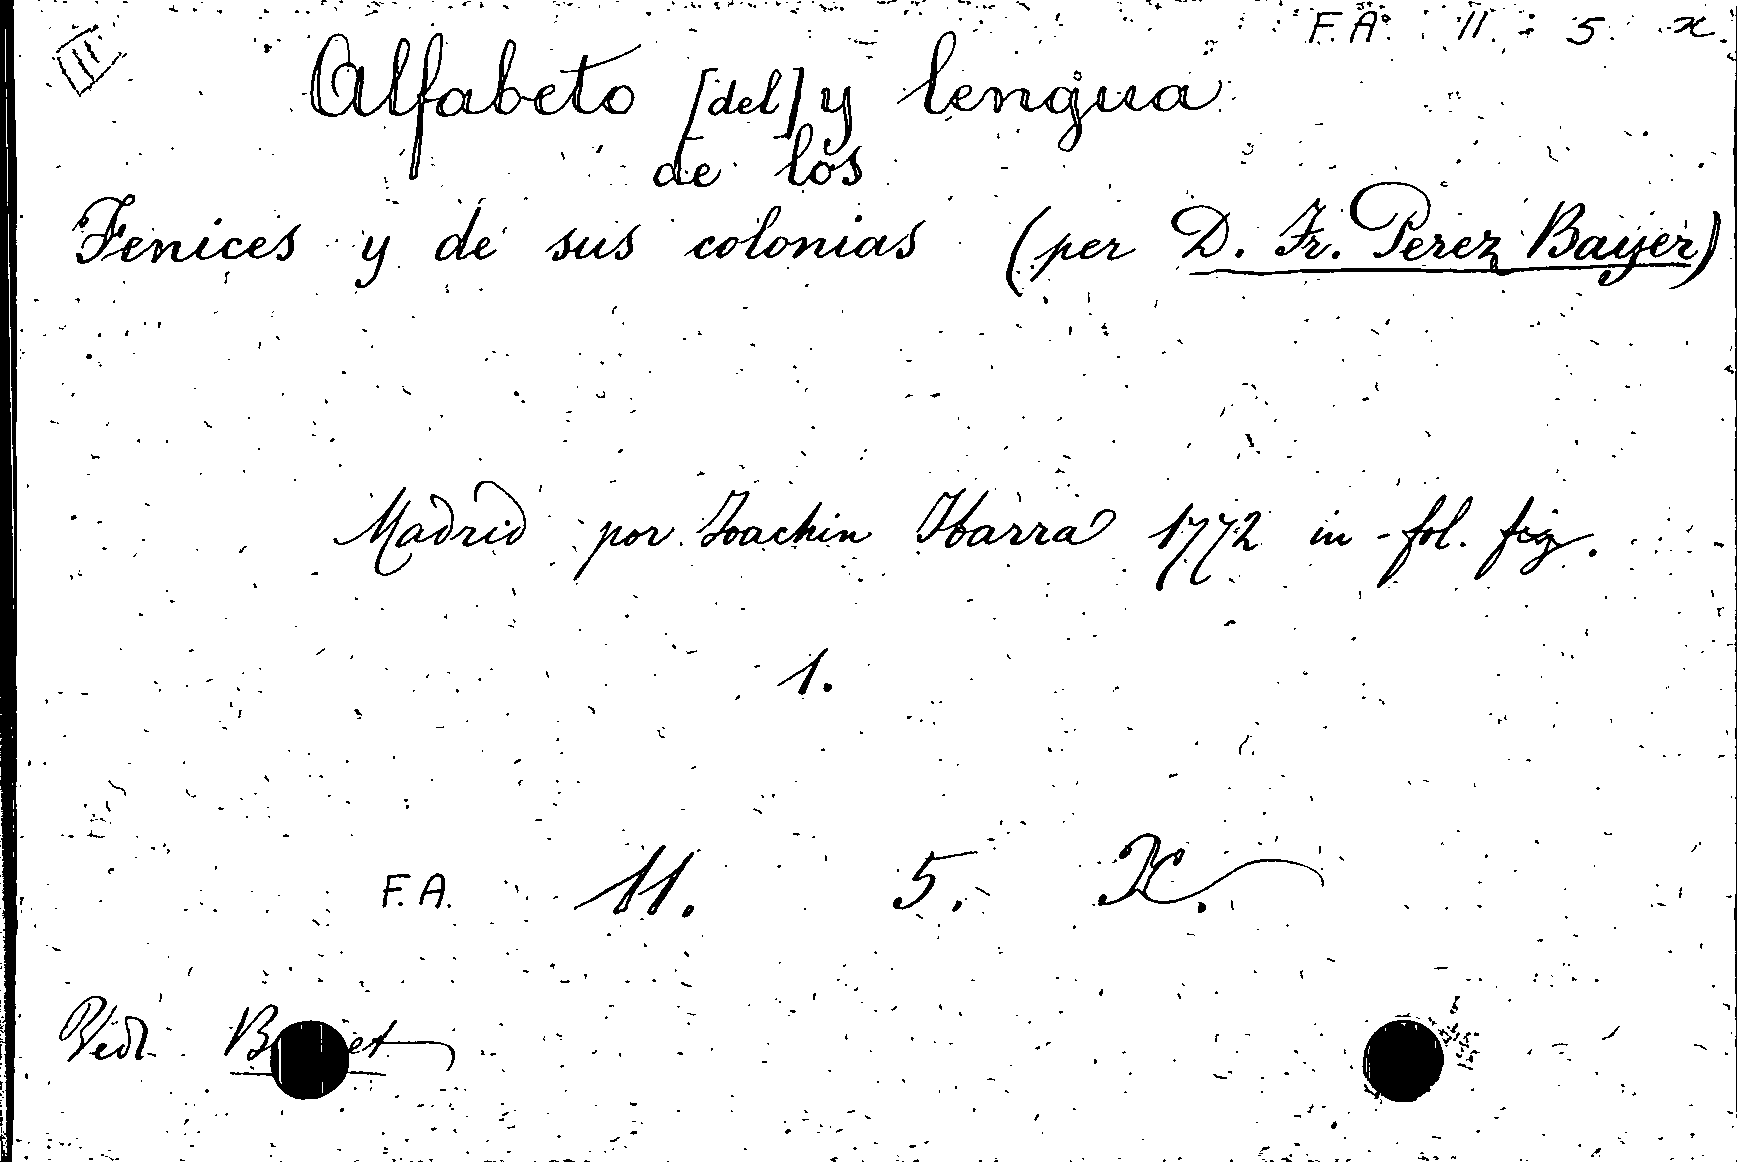 III
F. A. 11. 5. x.
Alfabeto [del] y lengua
de los
Fenices y de sus colonias (per D. Fr. Perez Baijer)
Madrid por Joachin Ibarra 1772 in-fol. fig.
1.
F. A. 11. 5. X.
Vedi